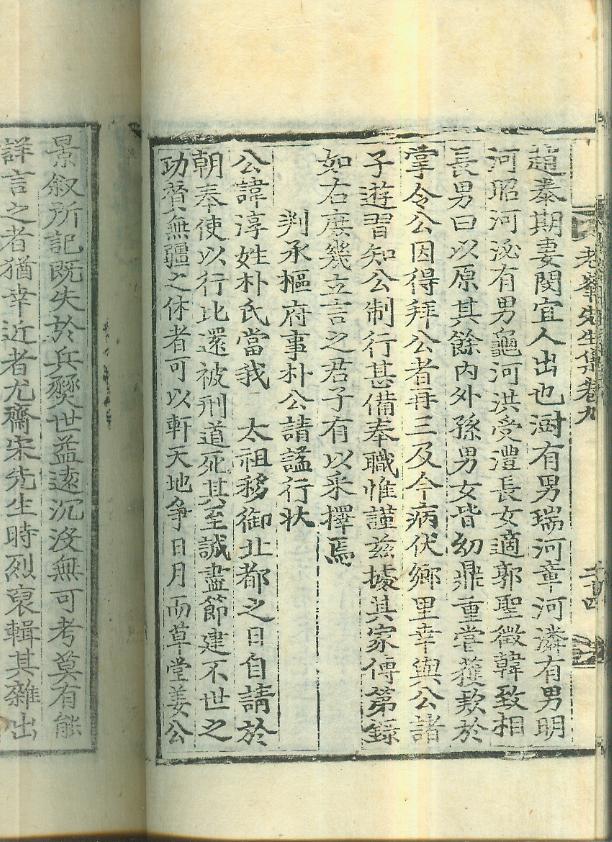 老峯先生集卷九
二十四
趙泰期妻閔宜人出也澍有男瑞河章河潾有男明
河昭河泌有男龜河洪受澧長女適郭聖徵韓致相
長男曰以原其餘內外孫男女皆幼鼎重嘗獲欵於
掌令公因得拜公者再三及今病伏鄉里幸與公諸
子遊習知公制行甚備奉職惟謹玆據其家傳第錄
如右庶幾立言之君子有以采擇焉
判承樞府事朴公請諡行狀
公諱淳姓朴氏當我 太祖移御北都之日自請於
朝奉使以行比還被刑道死其至誠盡節建不世之
功贊無疆之休者可以軒天地爭日月而草堂姜公
景叙所記既失於兵燹世益遠沉沒無可考莫有能
詳言之者猶幸近者尤齋宋先生時烈裒輯其雜出